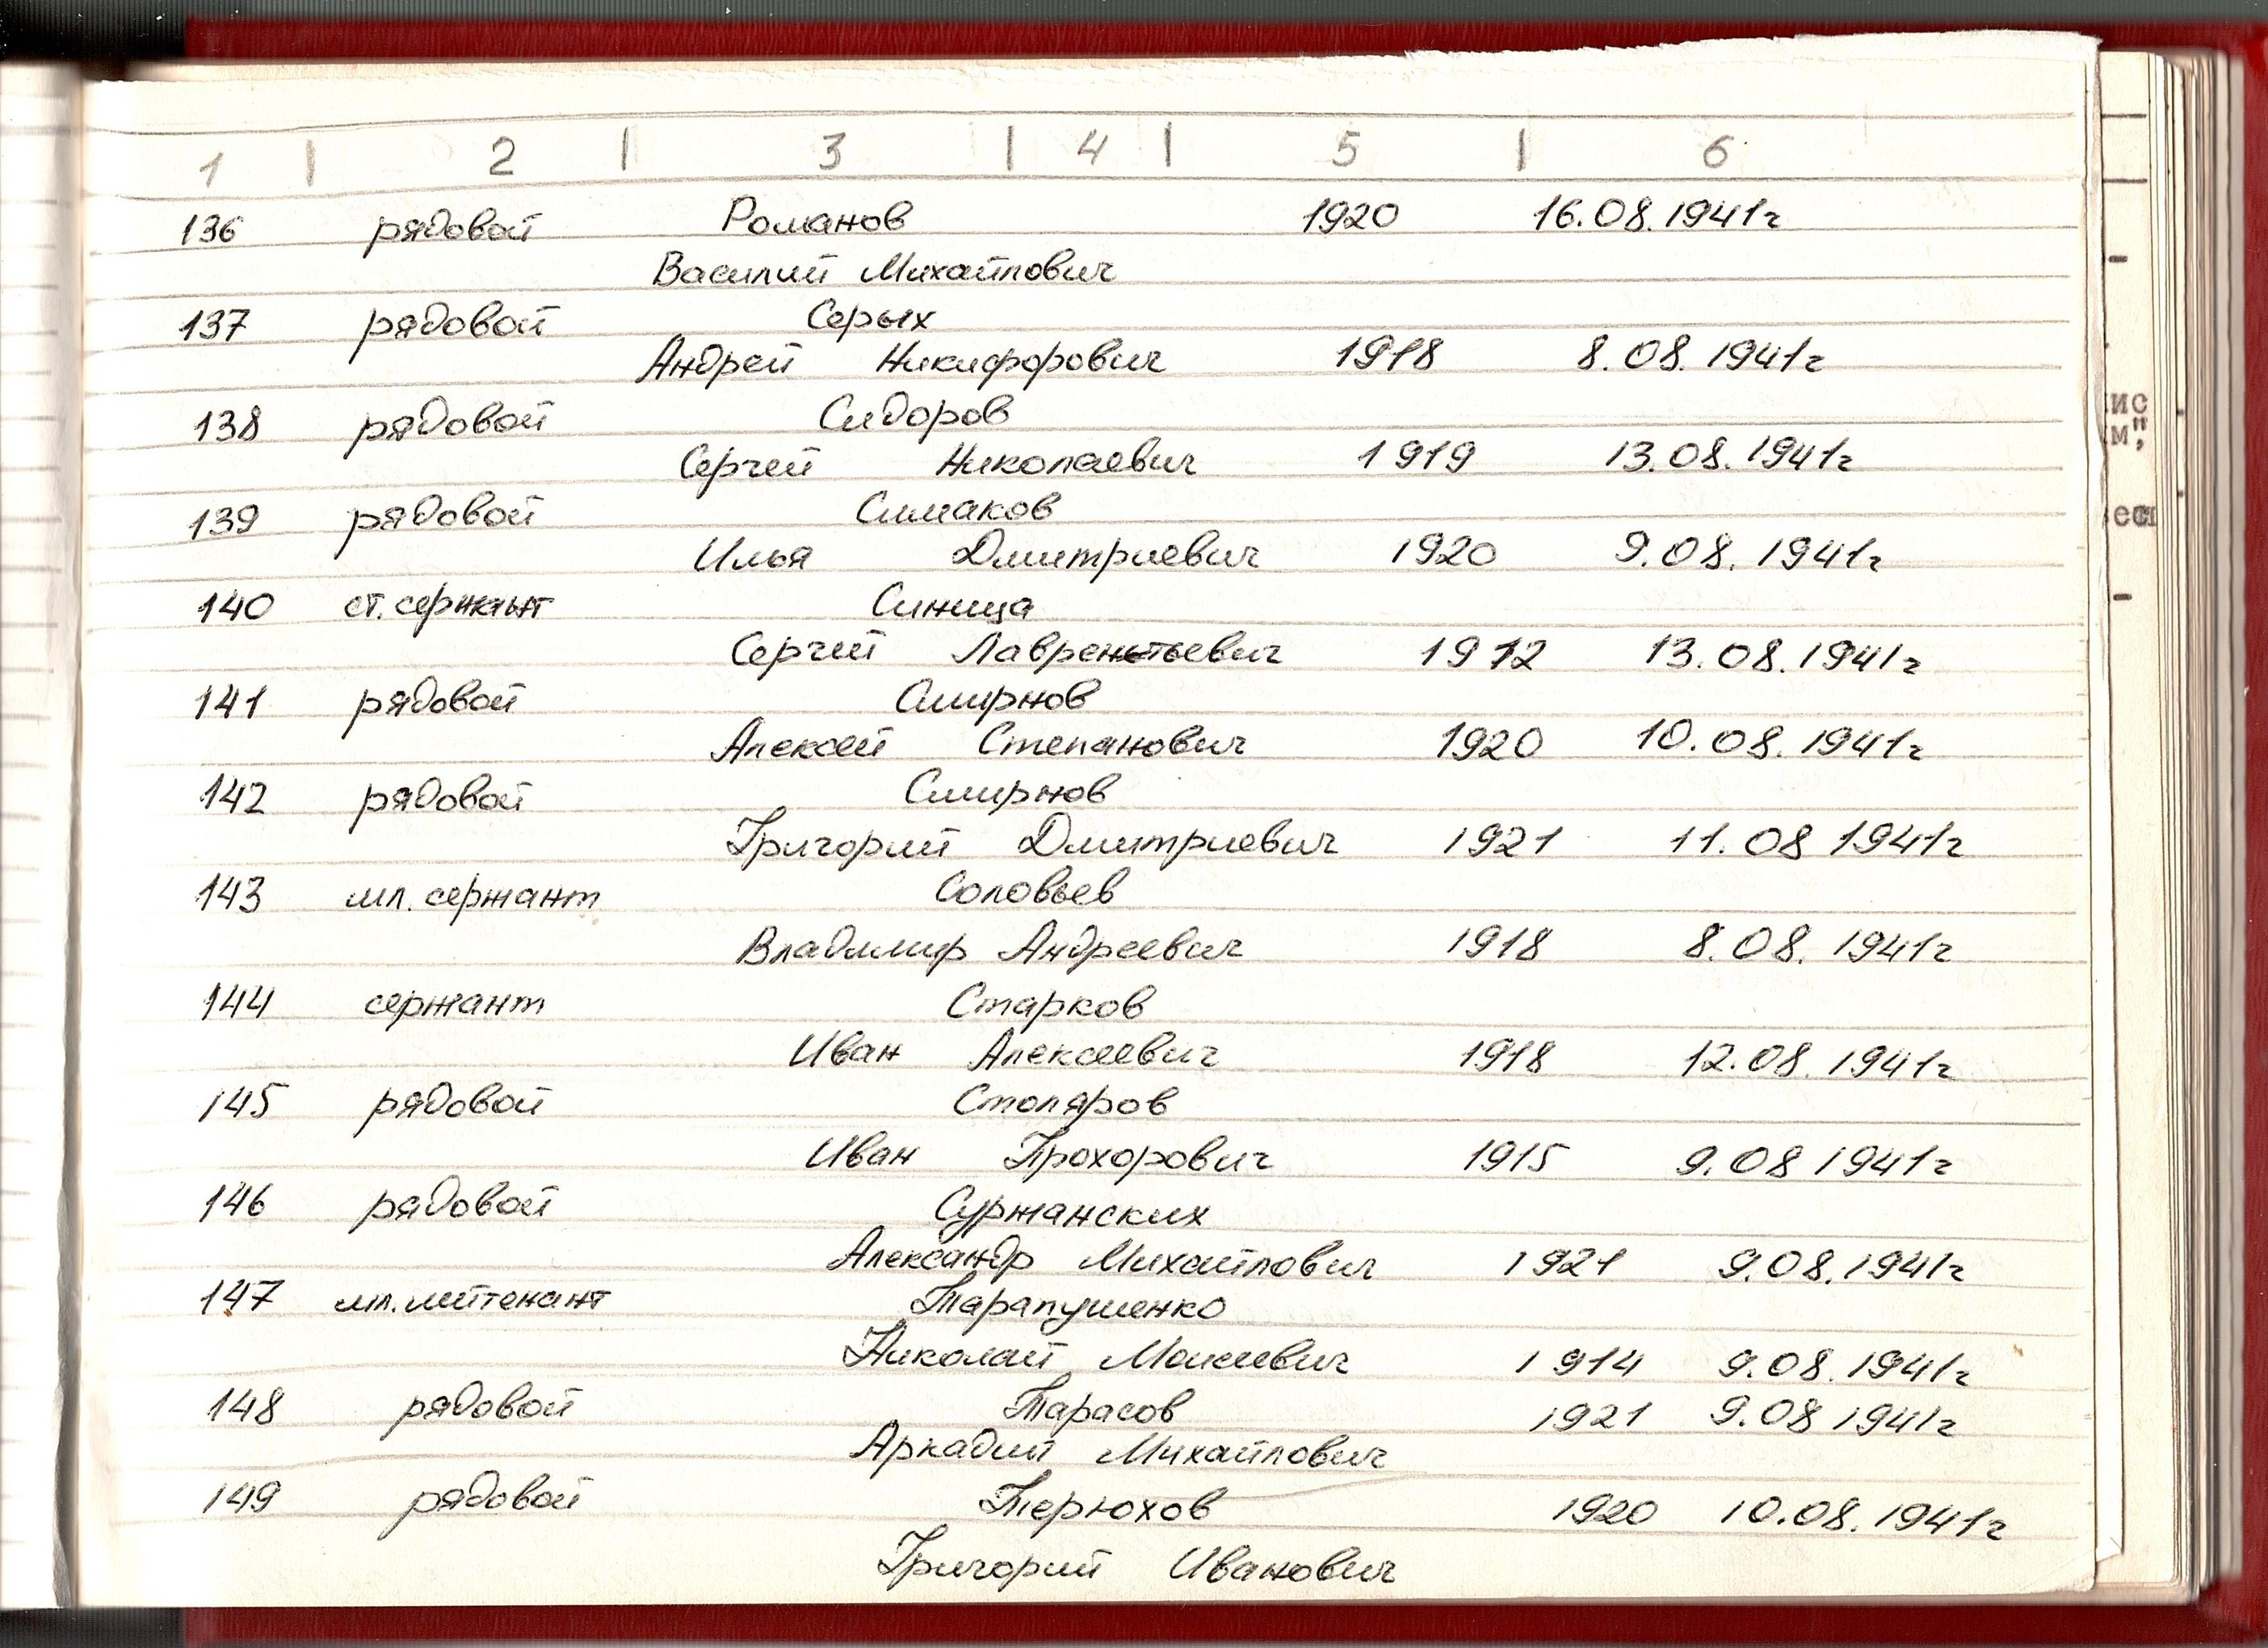 1 | 2 | 3 | 4 | 5 | 6
136 рядовой Романов 1920 16.08.1941г
Василий Михайлович
137 рядовой Серых
Андрей Никифорович 1918 8.08.1941г
138 рядовой Сидоров
Сергей Николаевич 1919 13.08.1941г
139 рядовой Симаков
Илья Дмитриевич 1920 9.08.1941г
140 ст. сержант Синица
Сергей Лаврентьевич 1912 13.08.1941г
141 рядовой Смирнов
Алексей Степанович 1920 10.08.1941г
142 рядовой Смирнов
Григорий Дмитриевич 1921 11.08 1941г
143 мл. сержант Соловьев
Владимир Андреевич 1918 8.08.1941г
144 сержант Старков
Иван Алексеевич 1918 12.08.1941г
145 рядовой Столяров
Иван Прохорович 1915 9.08 1941г
146 рядовой Суржанских
Александр Михайлович 1921 9.08.1941г
147 мл. лейтенант Тарапушенко
Николай Моисеевич 1914 9.08.1941г
148 рядовой Тарасов 1921 9.08 1941г
Аркадий Михайлович
149 рядовой Терюхов 1920 10.08.1941г
Григорий Иванович
ис
м",